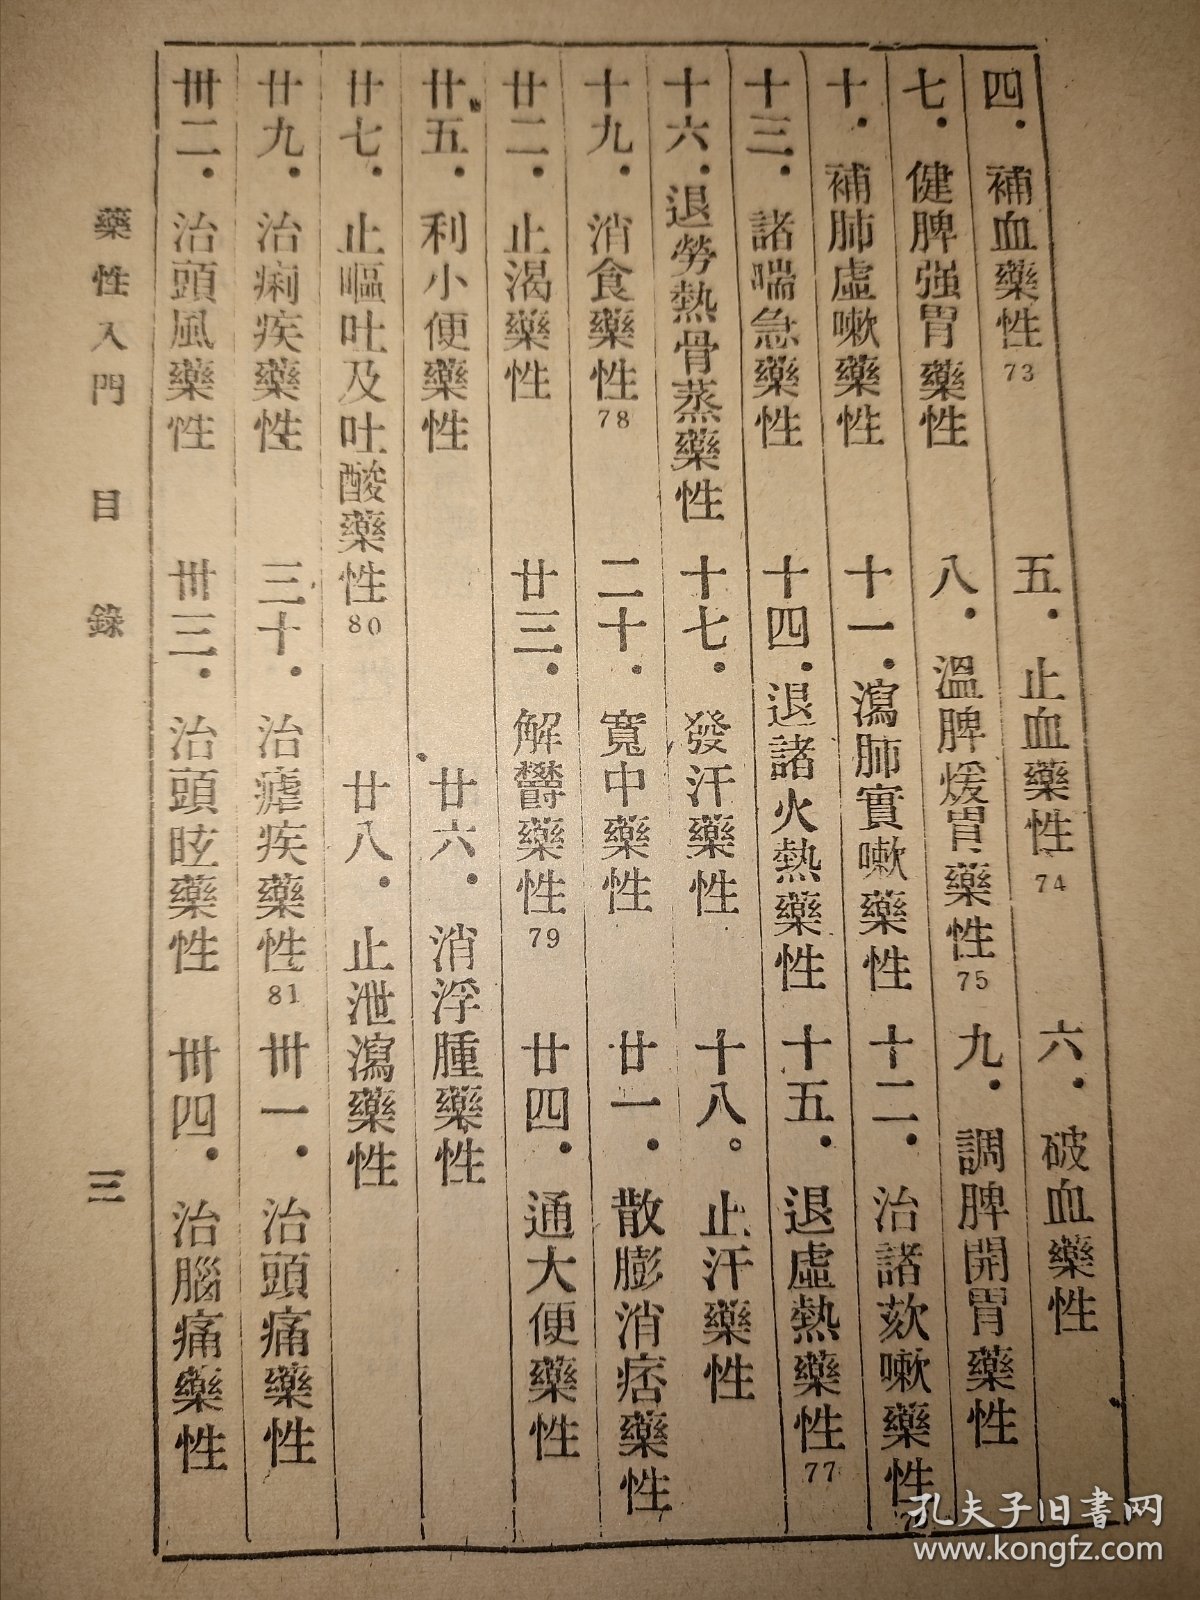 四．補血藥性73 五．止血藥性74 六．破血藥性
七．健脾强胃藥性 八．溫脾煖胃藥性75 九．調脾開胃藥性
十．補肺虛嗽藥性 十一．瀉肺實嗽藥性 十二．治諸欬嗽藥性
十三．諸喘急藥性 十四．退諸火熱藥性 十五．退虛熱藥性77
十六．退勞熱骨蒸藥性 十七．發汗藥性 十八。止汗藥性
十九．消食藥性78 二十．寬中藥性 廿一．散膨消痞藥性
廿二．止渴藥性 廿三．解鬱藥性79 廿四．通大便藥性
廿五．利小便藥性 廿六．消浮腫藥性
廿七．止嘔吐及吐酸藥性80 廿八．止泄瀉藥性
廿九．治痢疾藥性 三十．治瘧疾藥性81 卅一．治頭痛藥性
卅二．治頭風藥性 卅三．治頭眩藥性 卅四．治腦痛藥性
藥性入門 目錄 三
孔夫子旧書网
www.kongfz.com